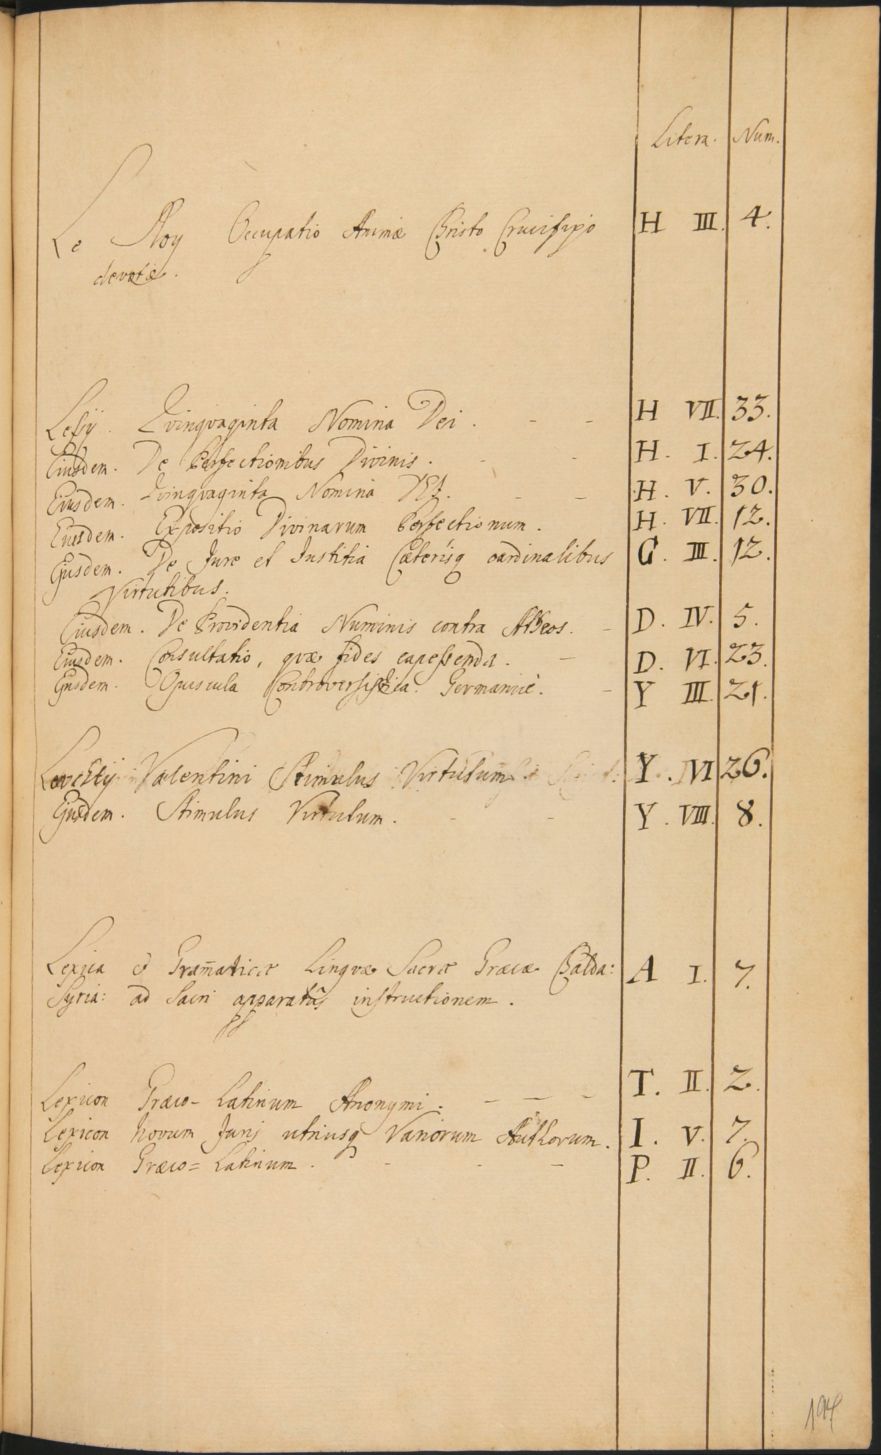 Litera. Num.
Le Roy Occupatio Animæ Christo Crucifixo H III. 4.
devotæ.
Lessij. Qvinqvaginta Nomina Dei. - - H VII. 33.
Eiusdem. De Perfectionibus Divinis. - - H. I. 24.
Eiusdem. Qvinqvaginta Nomina DEI. - - H. V. 30.
Eiusdem. Expositio Divinarum Perfectionum. H. VII. 12.
Ejusdem. De Jure et Justitia Cæterisq cardinalibus G. III. 12.
Virtutibus.
Eiusdem. De Providentia Numinis contra Atheos. - D. IV. 5.
Eiusdem. Consultatio, qvæ fides capessenda. - D. VI. 23.
Ejusdem. Opuscula Controversistica. Germanicè. - Y III. 21.
Valentini Stimulus Virtutum Y. IVI 26.
Ejusdem. Stimulus Virtutum. - - Y. VIII. 8.
Lexica & Gram̄aticæ Linguæ Sacræ Græcæ Chalda: A I. 7.
Syria: ad Sacri apparatûs instructionem.
Lexicon Græco-Latinum Anonymi. - - - T. II. 2.
Lexicon Novum Juris utriusq Variorum Authorum. I. V. 7.
Lexicon Græco=Latinum. - - - P. II. 6.
194